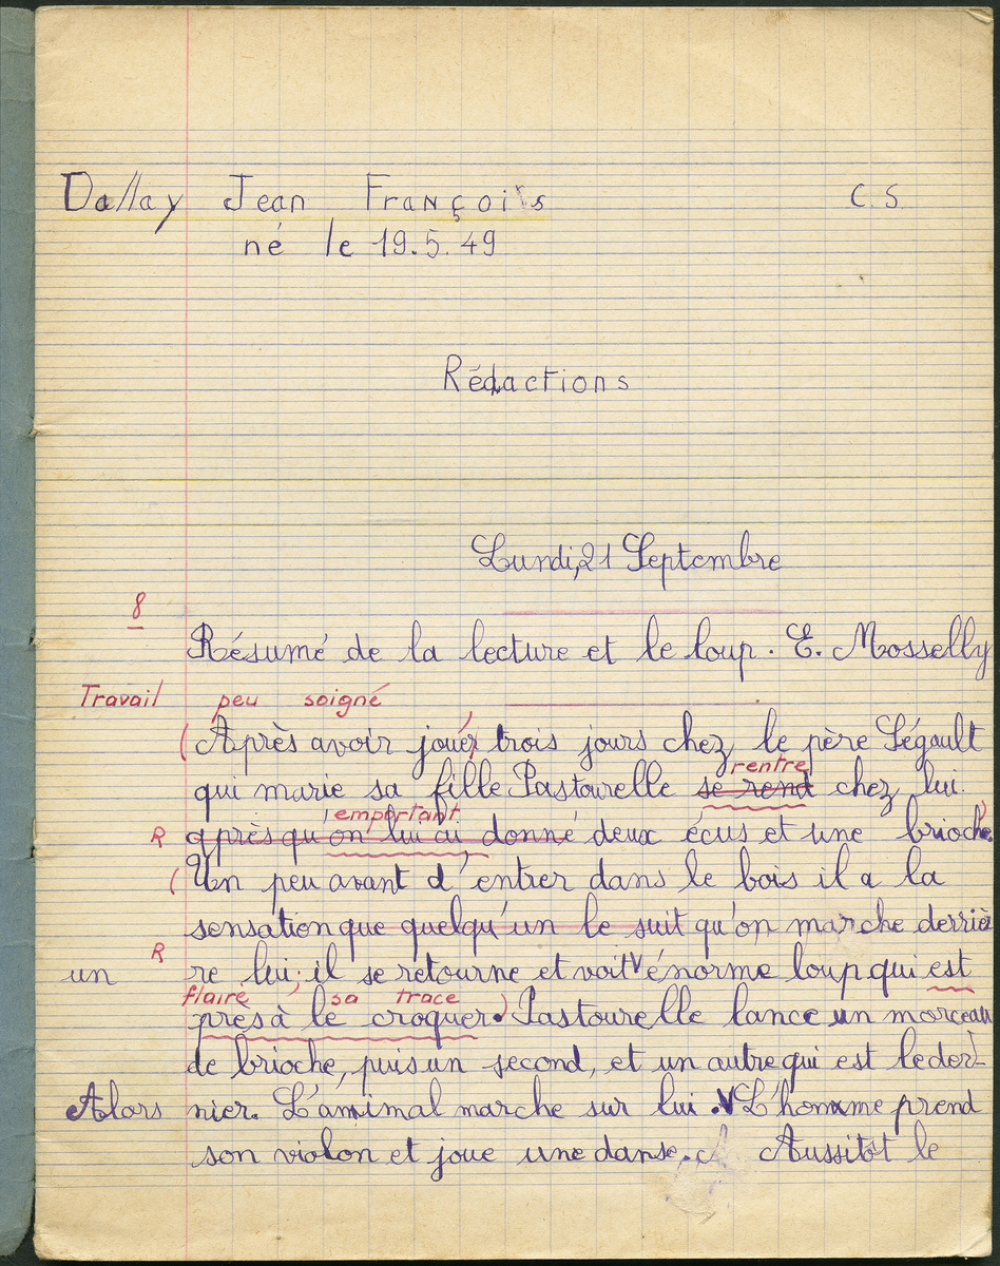 Dallay Jean François C.S.
né le 19.5.49
Rédactions
Lundi, 21 Septembre
8
Résumé de la lecture et le loup. E. Mosselly
Travail peu soigné
(Après avoir joué) trois jours chez le père Ségault
rentre
qui marie sa fille Pastourelle se rend chez lui.
emportant
R après qu'on lui ai donné deux écus et une brioche.
(Un peu avant d'entrer dans le bois il a la
sensation que quelqu'un le suit qu'on marche derriè
un R re lui; il se retourne et voit V énorme loup qui est
flaire sa trace )
près à le croquer. Pastourelle lance un morceau
de brioche, puis un second, et un autre qui est le der-
Alors nier. L'animal marche sur lui. V L'homme prend
son violon et joue une danse. Aussitôt le